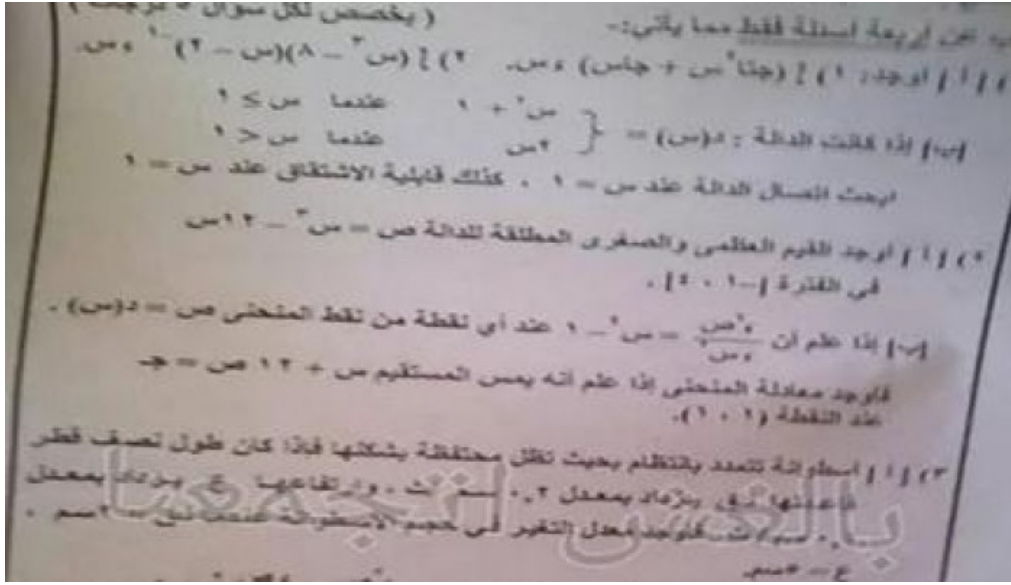 عن أربعة أسئلة فقط مما يأتي:- ( يخصص لكل سؤال ٥ درجات )
١) [ أ ] أوجد: ١) ∫ (جتا٢س + جاس) ءس. ٢) ∫ (س٣ – ٨)(س – ٢)-١ ءس.
[ب] إذا كانت الدالة : د(س) = { س٢ + ١ عندما س ≥ ١
٢س عندما س > ١
ابحث اتصال الدالة عند س = ١ ، كذلك قابلية الاشتقاق عند س = ١
٢) [ أ ] أوجد القيم العظمى والصغرى المطلقة للدالة ص = س٣ – ١٢س
في الفترة [–١ ، ٤] .
[ب] إذا علم أن ء٢ص / ءس٢ = س٢ – ١ عند أي نقطة من نقط المنحنى ص = د(س) .
فأوجد معادلة المنحنى إذا علم أنه يمس المستقيم س + ١٢ ص = جـ
عند النقطة (١ ، ١).
٣) [ أ ] أسطوانة تتمدد بانتظام بحيث تظل محتفظة بشكلها فإذا كان طول نصف قطر
قاعدتها نق يزداد بمعدل ٠,٢ سم/ث ، وارتفاعها ع يزداد بمعدل
سم/ث فأوجد معدل التغير في حجم الأسطوانة عندما نق = ٢سم ،
ع = ٥سم
بالغش اتجمعنا